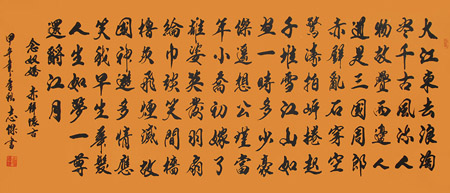 大江東去浪淘
尽千古風流人
物故壘西邊人
道是三國周郎
赤壁亂石穿空
驚濤拍岸捲起
千堆雪江山如
畫一時多少豪
傑遙想公瑾當
年小喬初嫁了
雄姿英發羽扇
綸巾談笑間檣
櫓灰飛煙滅故
國神遊多情應
笑我早生華髮
人生如夢一尊
還酹江月
念奴嬌 赤壁懷古
甲午年秋志傑書